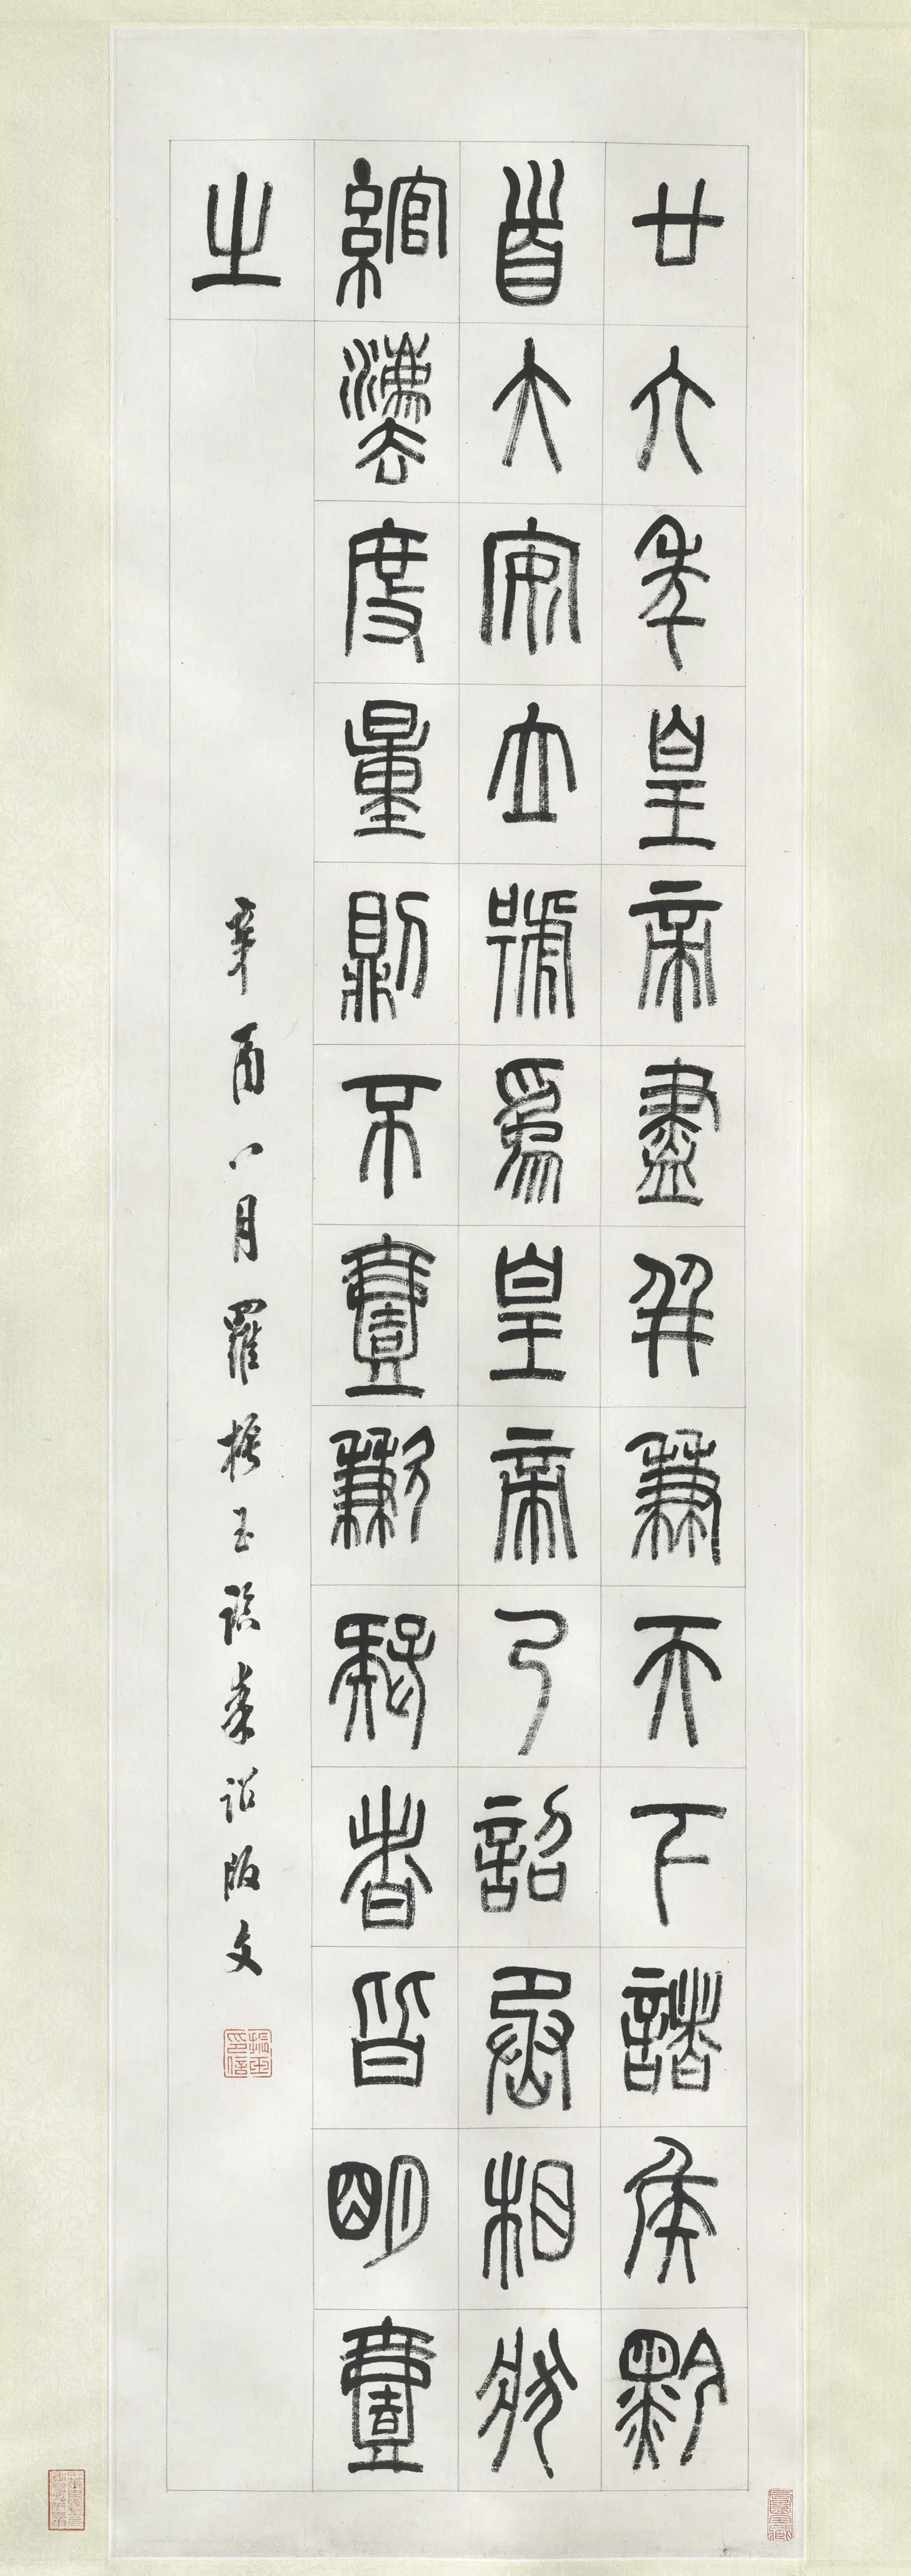 廿六年皇帝盡并兼天下諸侯黔
首大安立號爲皇帝乃詔丞相狀
綰灋度量則不壹歉疑者皆明壹
之
辛酉八月羅振玉臨秦詔版文
振玉印信